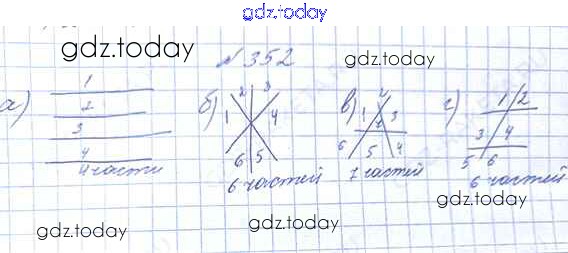 gdz.today
gdz.today
№ 352
gdz.today
а) 1 2 3 4
4 части
б) 1 2 3 4 5 6
6 частей
в) 1 2 3 4 5 6 7
7 частей
г) 1 2 3 4 5 6
6 частей
gdz.today
gdz.today
gdz.today